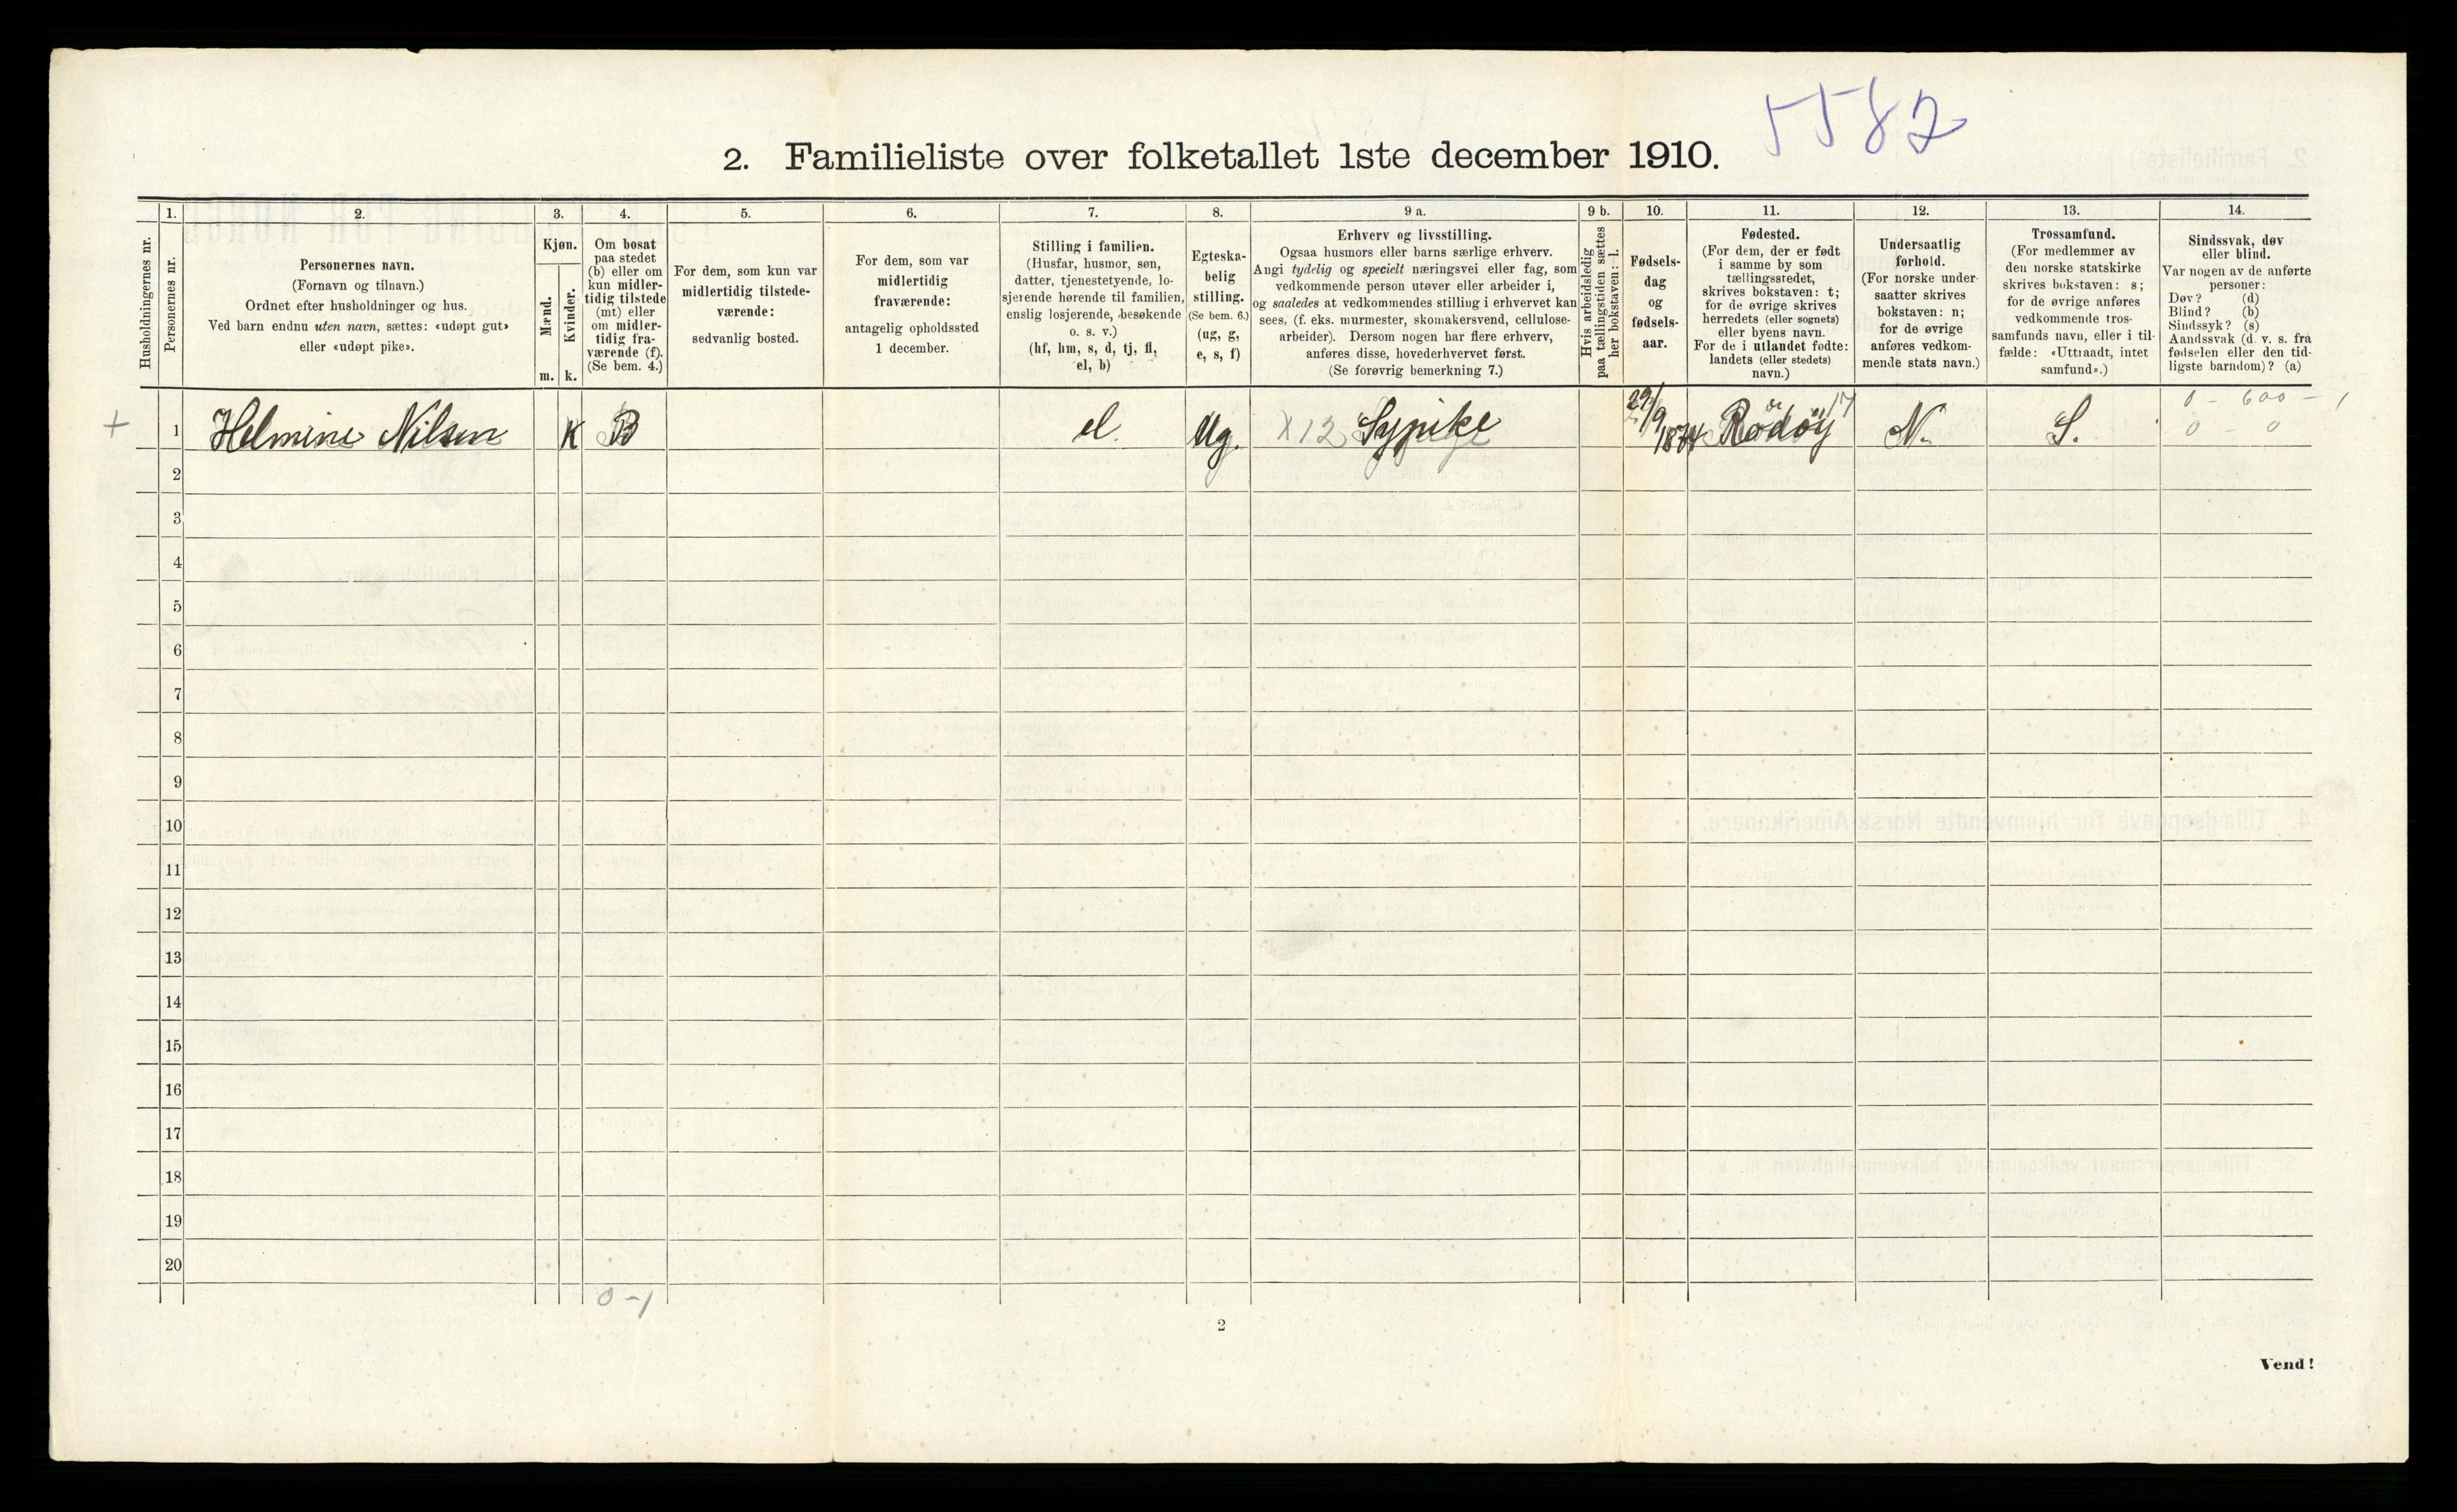 5582
2. Familieliste over folketallet 1ste december 1910.
Husholdningernes nr.
1.
Personernes nr.
2.
Personernes navn.
(Fornavn og tilnavn.)
Ordnet efter husholdninger og hus.
Ved barn endnu uten navn, sættes: «udøpt gut»
eller «udøpt pike».
3.
Kjøn.
Mænd.
m.
Kvinder.
k.
4.
Om bosat
paa stedet
(b) eller om
kun midler-
tidig tilstede
(mt) eller
om midler-
tidig fra-
værende (f).
(Se bem. 4.)
5.
For dem, som kun var
midlertidig tilstede-
værende:
sedvanlig bosted.
6.
For dem, som var
midlertidig
fraværende:
antagelig opholdssted
1 december.
7.
Stilling i familien.
(Husfar, husmor, søn,
datter, tjenestetyende, lo-
sjerende hørende til familien,
enslig losjerende, besøkende
o. s. v.)
(hf, hm, s, d, tj, fl,
el, b)
8.
Egteska-
belig
stilling.
(Se bem. 6.)
(ug, g,
e, s, f)
9 a.
Erhverv og livsstilling.
Ogsaa husmors eller barns særlige erhverv.
Angi tydelig og specielt næringsvei eller fag, som
vedkommende person utøver eller arbeider i,
og saaledes at vedkommendes stilling i erhvervet kan
sees, (f. eks. murmester, skomakersvend, cellulose-
arbeider). Dersom nogen har flere erhverv,
anføres disse, hovederhvervet først.
(Se forøvrig bemerkning 7.)
9 b.
Hvis arbeidsledig
paa tællingstiden sættes
her bokstaven: l.
10.
Fødsels-
dag
og
fødsels-
aar.
11.
Fødested.
(For dem, der er født
i samme by som
tællingsstedet,
skrives bokstaven: t;
for de øvrige skrives
herredets (eller sognets)
eller byens navn.
For de i utlandet fødte:
landets (eller stedets)
navn.)
12.
Undersaatlig
forhold.
(For norske under-
saatter skrives
bokstaven: n;
for de øvrige
anføres vedkom-
mende stats navn.)
13.
Trossamfund.
(For medlemmer av
den norske statskirke
skrives bokstaven: s;
for de øvrige anføres
vedkommende tros-
samfunds navn, eller i til-
fælde: «Uttraadt, intet
samfund».)
14.
Sindssvak, døv
eller blind.
Var nogen av de anførte
personer:
Døv? (d)
Blind? (b)
Sindssyk? (s)
Aandssvak (d. v. s. fra
fødselen eller den tid-
ligste barndom)? (a)
+ 1 Helmine Nilsen K B el. Ug. X 12 Sypike 29/9 1874 Rödöy 17 N. S. 0 - 600 - 1
0 - 0
2
3
4
5
6
7
8
9
10
11
12
13
14
15
16
17
18
19
20
0 - 1
2
Vend!